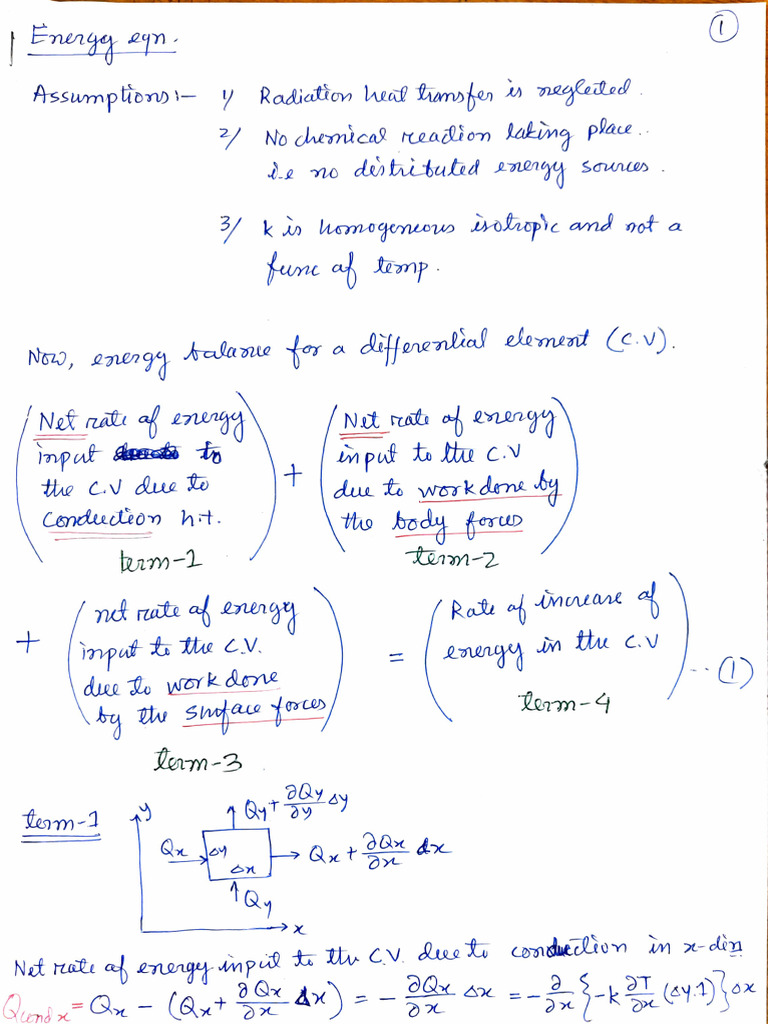 1
Energy eqn.
Assumptions:- 1) Radiation heat transfer is neglected.
2) No chemical reaction taking place..
i.e no distributed energy sources.
3) k is homogeneous isotropic and not a
func of temp.
Now, energy balance for a differential element (C.V).
(Net rate of energy input to the C.V due to conduction h.t.) + (Net rate of energy input to the C.V due to work done by the body forces)
term-1 term-2
+ (net rate of energy input to the C.V. due to work done by the surface forces) = (Rate of increase of energy in the C.V) ...(1)
term-3 term-4
term-1
y
Qy + ∂Qy/∂y Δy
Qx Δy Qx + ∂Qx/∂x dx
Δx
Qy
x
Net rate of energy input to the C.V. due to conduction in x-dirn
Qcond x = Qx - (Qx + ∂Qx/∂x Δx) = - ∂Qx/∂x Δx = - ∂/∂x {-k ∂T/∂x (Δy.1)} Δx